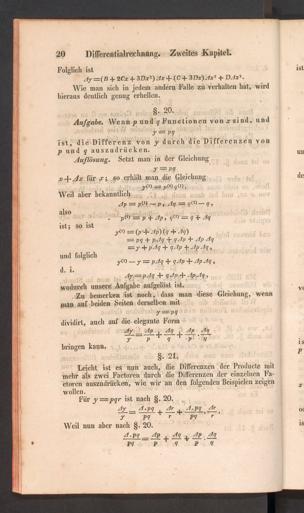 20 Differentialrechnung. Zweites Kapitel.
Folglich ist
Δy=(B+2Cx+3Dx²)Δx+(C+3Dx)Δx²+DΔx³.
Wie man sich in jedem andern Falle zu verhalten hat, wird
hieraus deutlich genug erhellen.
§. 20.
Aufgabe. Wenn p und q Functionen von x sind, und
y = pq
ist, die Differenz von y durch die Differenzen von
p und q auszudrücken.
Auflösung. Setzt man in der Gleichung
y = pq
x+Δx für x; so erhält man die Gleichung
y⁽¹⁾=p⁽¹⁾q⁽¹⁾.
Weil aber bekanntlich
Δp = p⁽¹⁾−p, Δq = q⁽¹⁾−q,
also
p⁽¹⁾ = p+Δp, q⁽¹⁾ = q+Δq
ist; so ist
y⁽¹⁾ = (p+Δp)(q+Δq)
= pq+pΔq+qΔp+Δp.Δq
= y+pΔq+qΔp+Δp.Δq,
und folglich
y⁽¹⁾−y = pΔq+qΔp+Δp.Δq,
d. i.
Δy = pΔq+qΔp+Δp.Δq,
wodurch unsere Aufgabe aufgelöst ist.
Zu bemerken ist noch, dass man diese Gleichung, wenn
man auf beiden Seiten derselben mit
y = pq
dividirt, auch auf die elegante Form
Δy/y = Δp/p + Δq/q + Δp/p . Δq/q
bringen kann.
§. 21.
Leicht ist es nun auch, die Differenzen der Producte mit
mehr als zwei Factoren durch die Differenzen der einzelnen Fa-
ctoren auszudrücken, wie wir an den folgenden Beispielen zeigen
wollen.
Für y = pqr ist nach §. 20.
Δy/y = Δ.pq/pq + Δr/r + Δ.pq/pq . Δr/r.
Weil nun aber nach §. 20.
Δ.pq/pq = Δp/p + Δq/q + Δp/p . Δq/q